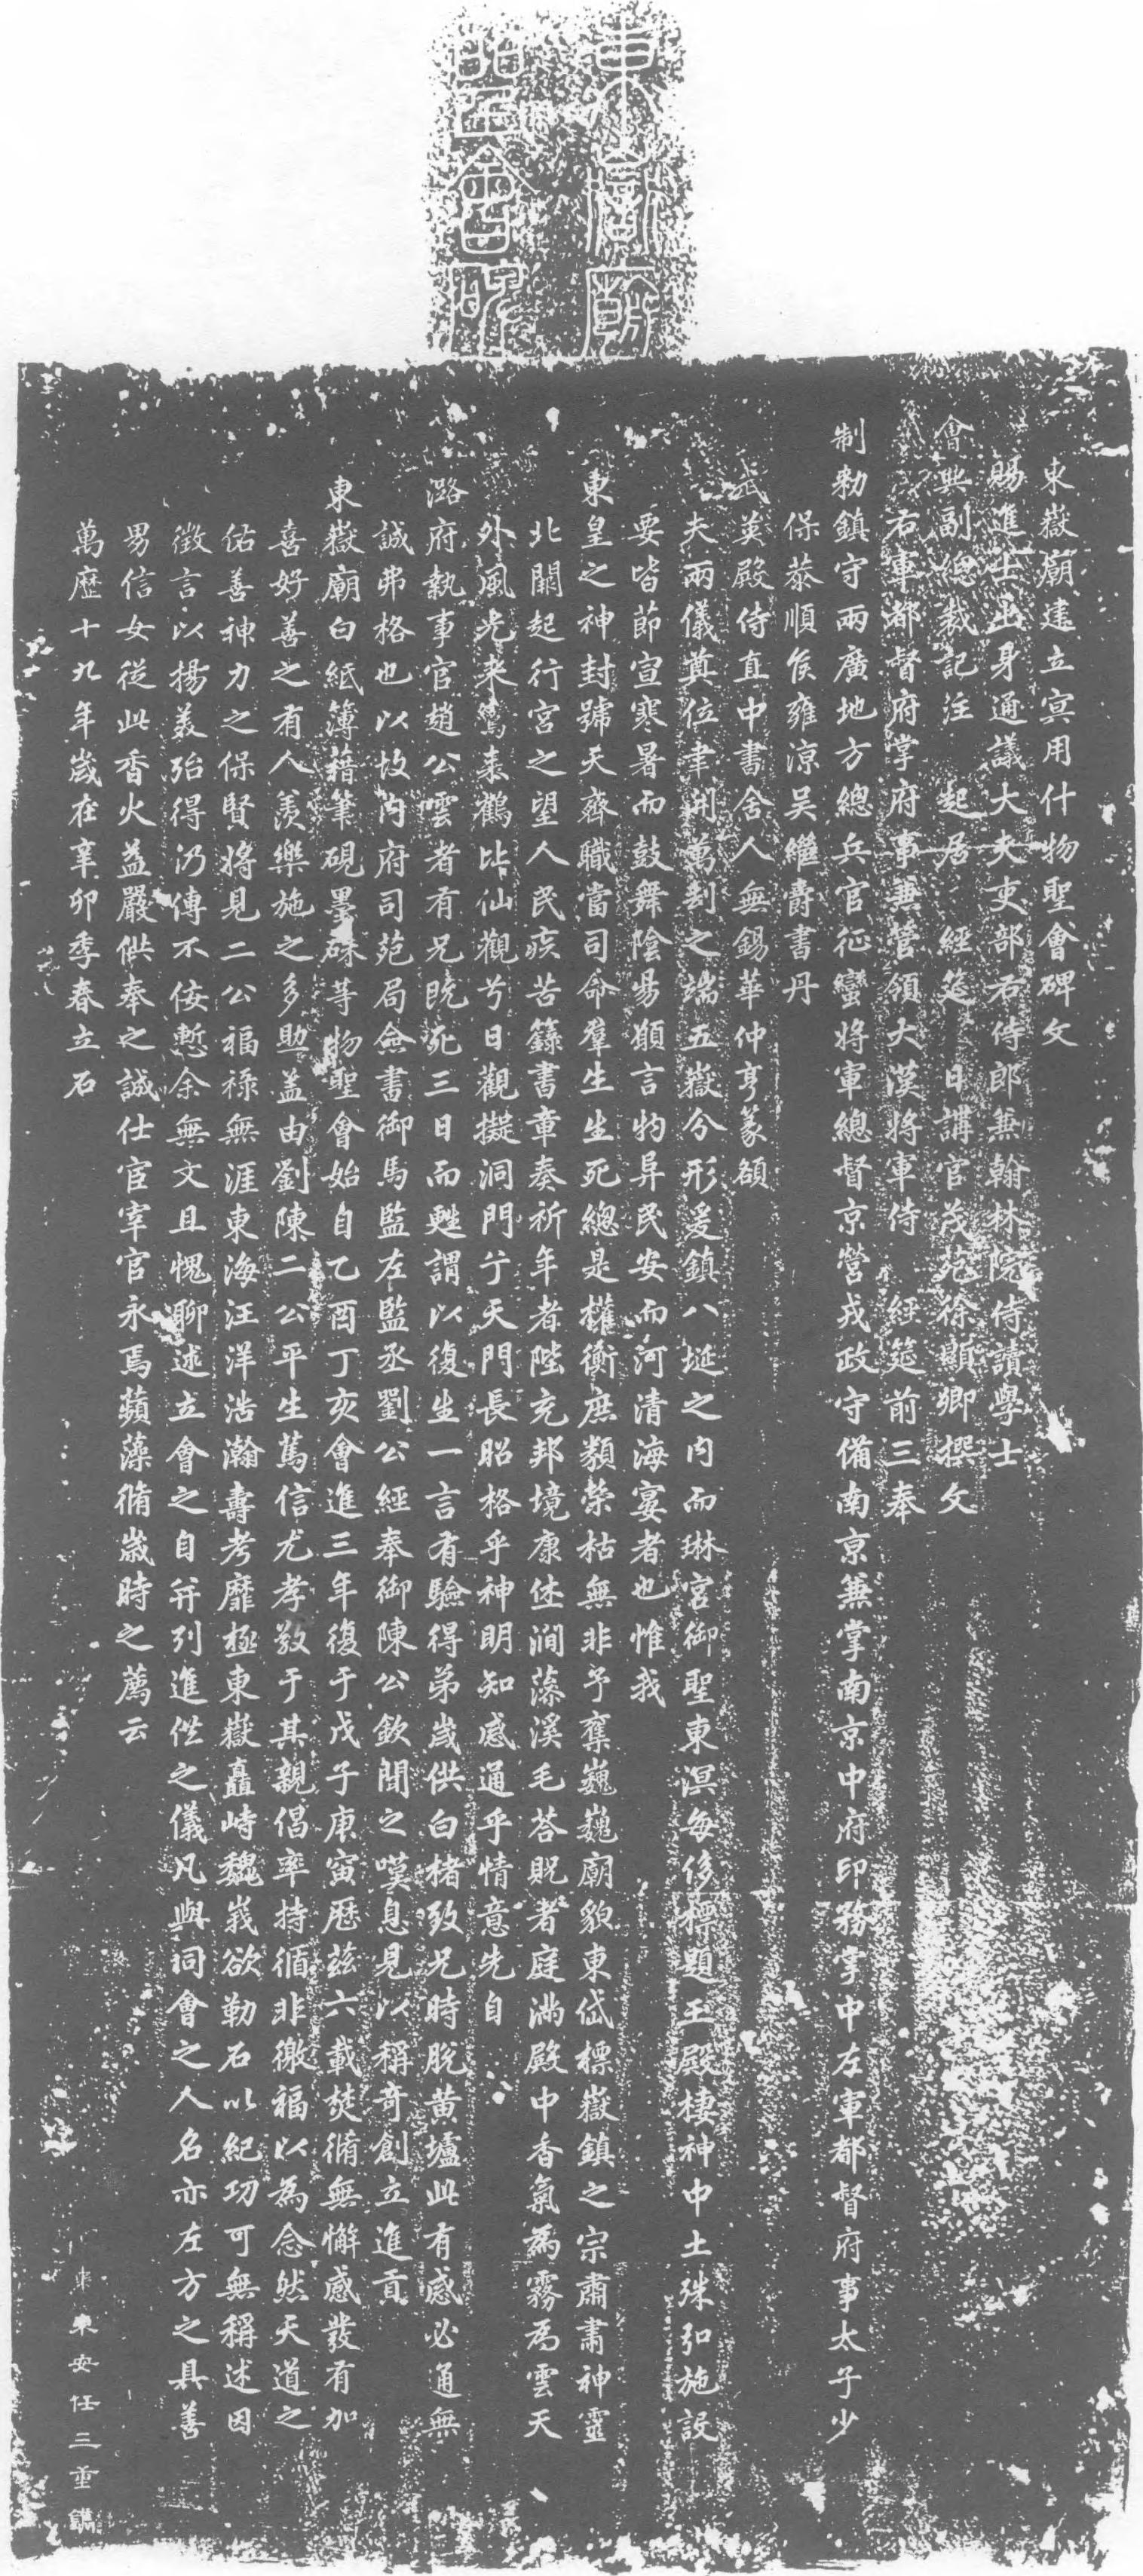 東嶽廟
聖會碑
東嶽廟建立冥用什物聖會碑文
賜進士出身通議大夫吏部右侍郎兼翰林院侍讀學士
會典副總裁記注起居經筵日講官茂苑徐顯卿撰文
右軍都督府掌府事兼管領大漢將軍侍經筵前三奉
制勑鎮守兩廣地方總兵官征蠻將軍總督京營戎政守備南京兼掌南京中府印務掌中左軍都督府事太子少
保恭順侯雍涼吳繼爵書丹
武英殿侍直中書舍人無錫華仲亨篆額
夫兩儀奠位聿開萬刦之端五嶽分形爰鎮八埏之内而琳宮御聖東溟每侈標題玉殿棲神中土殊弘施設
要皆節宣寒暑而鼓舞陰昜願言物异民安而河清海宴者也惟我
東皇之神封號天齊職當司命羣生生死總是權衡庶類榮枯無非予奪巍巍廟貌東岱標嶽鎮之宗肅肅神靈
北闕起行宮之望人民疾苦籙書章奏祈年者陛充邦境康佳澗藻溪毛荅貺者庭滿殿中香氣為霧為雲天
外風光来鸞来鶴比仙觀兮日觀擬洞門兮天門長昭格乎神明知感通乎情意先自
潞府執事官趙公雲者有兄既死三日而甦謂以復生一言有驗得弟嵗供白楮致兄時脫黄壚此有感必通無
誠弗格也以故内府司苑局僉書御馬監左監丞劉公經奉御陳公欽聞之嘆息見以稱奇創立進貢
東嶽廟白紙簿藉筆硯墨硃等物聖會始自乙酉丁亥會進三年復于戊子庚寅歷兹六載焚脩無懈感發有加
喜好善之有人羡樂施之多助盖由劉陳二公平生篤信尤孝敬于其親倡率持循非徼福以為念然天道之
佑善神力之保賢將見二公福祿無涯東海汪洋浩瀚壽考靡極東嶽矗峙巍峩欲勒石以紀功可無稱述因
徵言以揚羙殆得乃傳不佞慙余無文且愧聊述立會之自并列進供之儀凡與祠會之人名亦左方之具善
男信女從此香火益嚴供奉之誠仕官宰官永焉蘋藻脩嵗時之薦云
萬歷十九年嵗在辛卯季春立石
東安任三重鐫